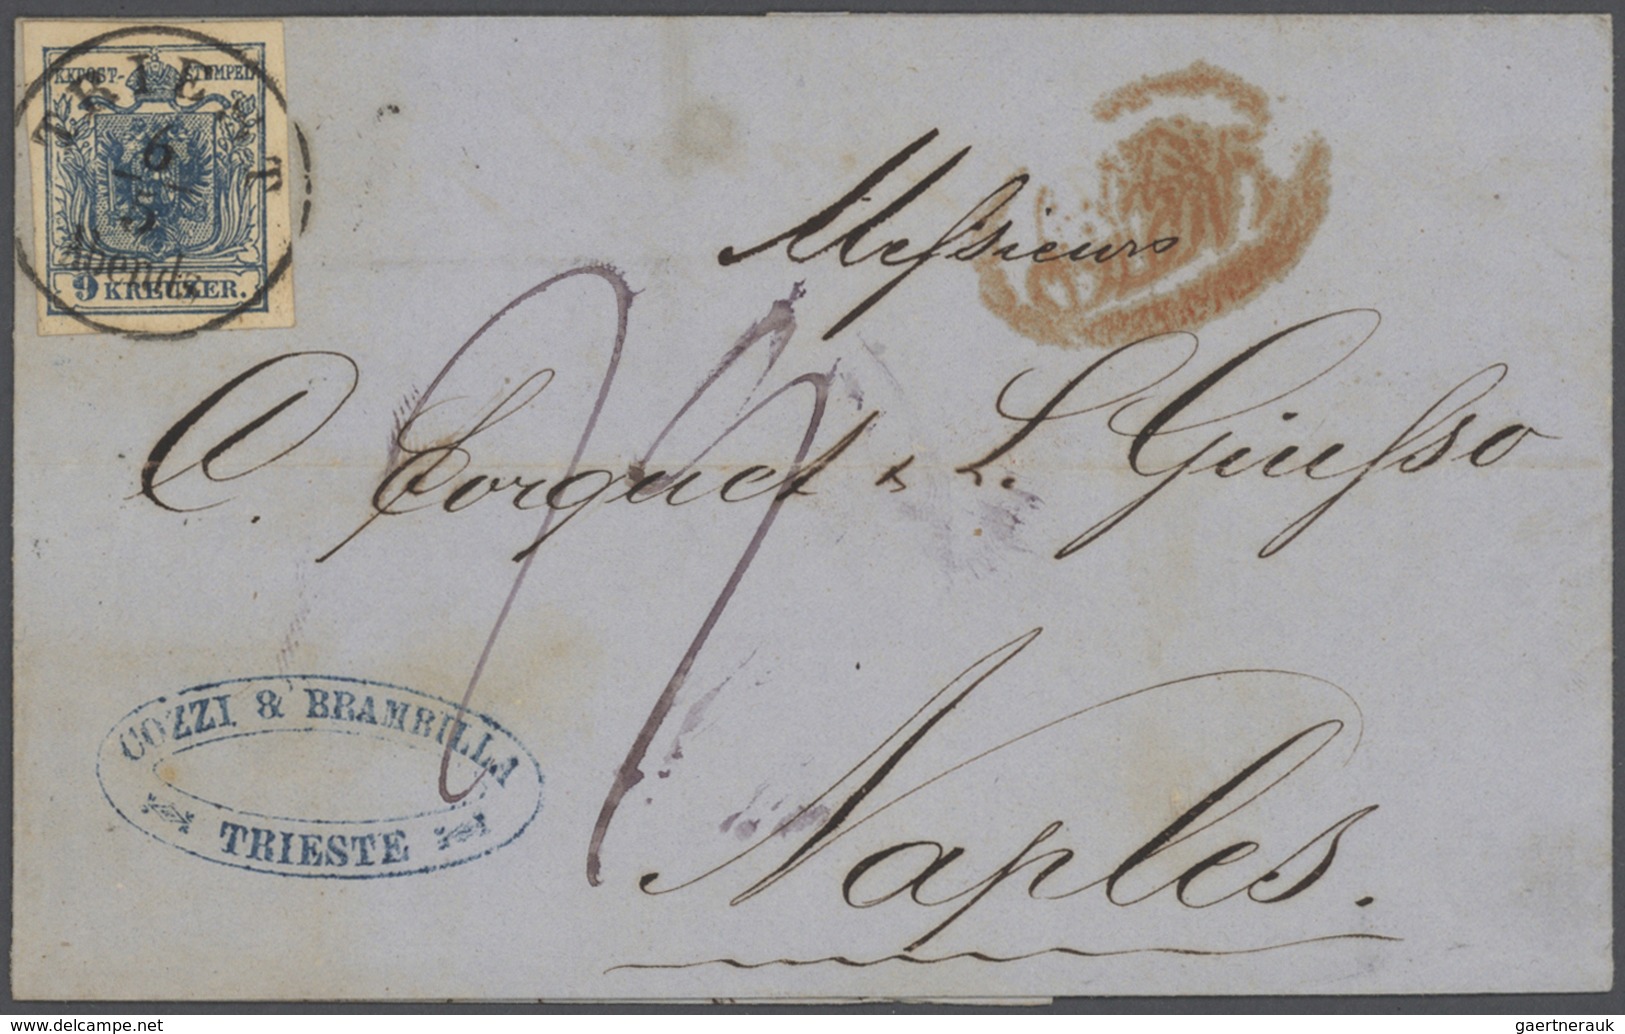 KKPOST-STEMPEL
TRIEST
6
5
Abends
9 KREUZER.
Messieurs
C. Corquet & L. Giusso
Naples.
COZZI & BRAMBILLA
TRIESTE
www.delcampe.net
gaertnerauk